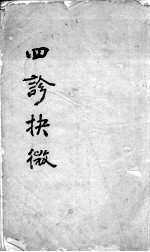 四診抉微